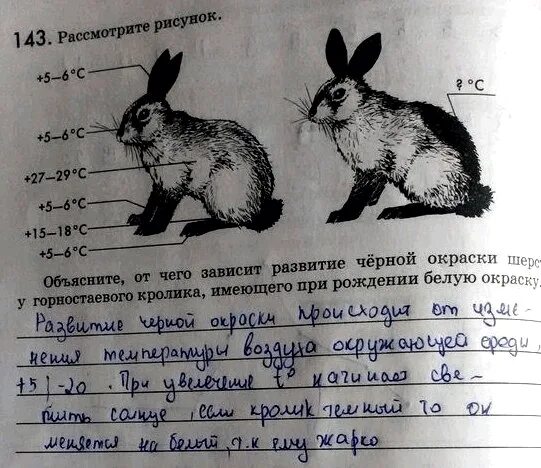 143. Рассмотрите рисунок.
+5–6°C
? °C
+5–6°C
+27–29°C
+5–6°C
+15–18°C
+5–6°C
Объясните, от чего зависит развитие чёрной окраски шерс
у горностаевого кролика, имеющего при рождении белую окраску.
Развитие черной окраски происходит от изме-
нения температуры воздуха окружающей среды,
+5|-20. При увеличение t° начинает све-
тить солнце, если кролик темный то он
меняется на белый, т.к ему жарко